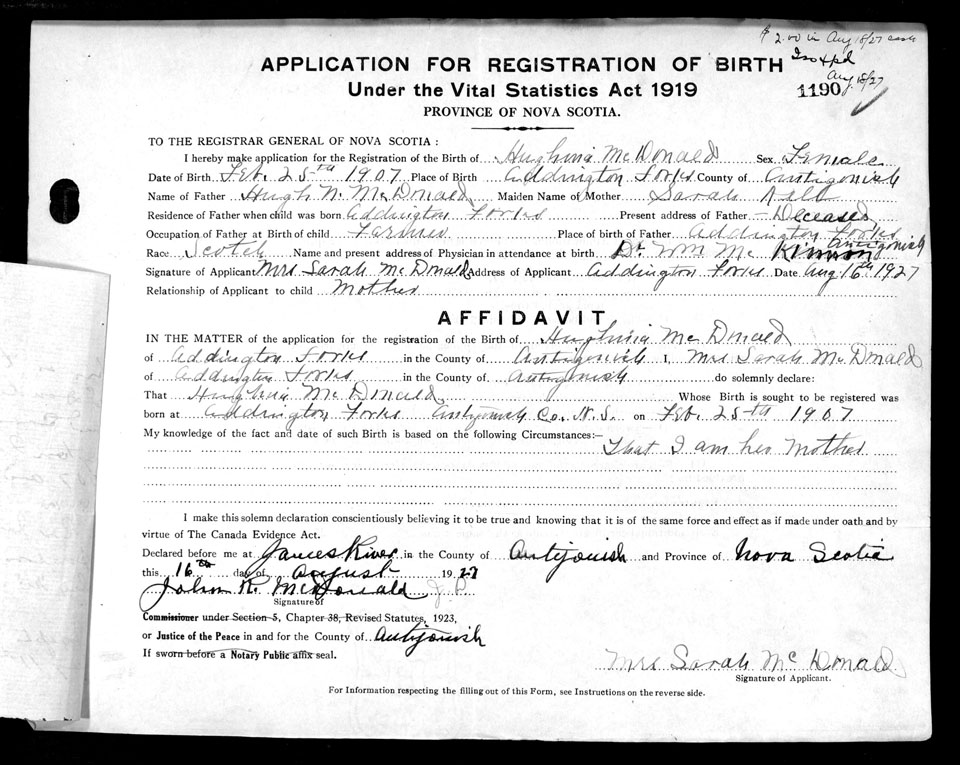 $2.00 in Aug 18/27 cash
Aug. 18/27
APPLICATION FOR REGISTRATION OF BIRTH
1190
Under the Vital Statistics Act 1919
PROVINCE OF NOVA SCOTIA.
TO THE REGISTRAR GENERAL OF NOVA SCOTIA :
I hereby make application for the Registration of the Birth of Hughina McDonald Sex Female
Date of Birth Feb. 25th 1907 Place of Birth Addington Forks County of Antigonish
Name of Father Hugh N. McDonald Maiden Name of Mother Sarah
Residence of Father when child was born Addington Forks Present address of Father — Deceased
Occupation of Father at Birth of child Farmer Place of birth of Father Addington Forks
Antigonish
Race Scotch Name and present address of Physician in attendance at birth Dr. Wm Mc Kinnon
Signature of Applicant Mrs Sarah McDonald Address of Applicant Addington Forks Date Aug 16th 1927
Relationship of Applicant to child Mother
AFFIDAVIT
IN THE MATTER of the application for the registration of the Birth of Hughinia McDonald
of Addington Forks in the County of Antigonish I, Mrs Sarah McDonald
of Addington Forks in the County of Antogonish do solemnly declare:
That Hughina McDonald Whose Birth is sought to be registered was
born at Addington Forks Antigonish Co. N.S. on Feb. 25th 1907
My knowledge of the fact and date of such Birth is based on the following Circumstances:—
That I am her Mother
I make this solemn declaration conscientiously believing it to be true and knowing that it is of the same force and effect as if made under oath and by
virtue of The Canada Evidence Act.
Declared before me at James River in the County of Antigonish and Province of Nova Scotia
this 16th day of August 1927
John R. McDonald J P
Signature of
Commissioner under Section 5, Chapter 38, Revised Statutes, 1923,
or Justice of the Peace in and for the County of Antigonish
If sworn before a Notary Public affix seal.
Mrs Sarah McDonald
Signature of Applicant.
For Information respecting the filling out of this Form, see Instructions on the reverse side.